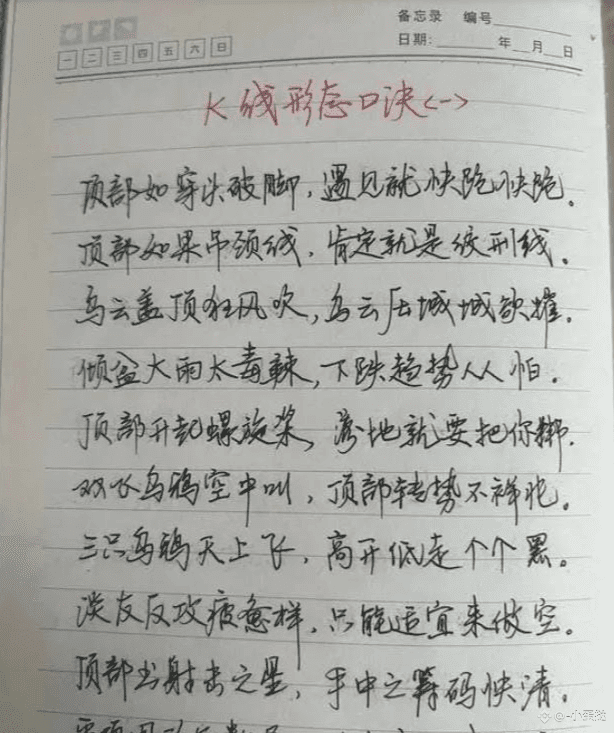 备忘录 编号
一 二 三 四 五 六 日
日期: 年 月 日
K线形态口诀<一>
顶部如穿头破脚，遇见就快跑快跑。
顶部如果吊颈线，肯定就是绞刑线。
乌云盖顶狂风吹，乌云压城城欲摧.
倾盆大雨太毒辣，下跌趋势人人怕.
顶部升起螺旋桨，落地就要把你绑.
双飞乌鸦空中叫，顶部转势不祥兆。
三只乌鸦天上飞，高开低走个个黑。
淡友反攻疲惫样，只能适宜来做空。
顶部出射击之星，手中之筹码快清。